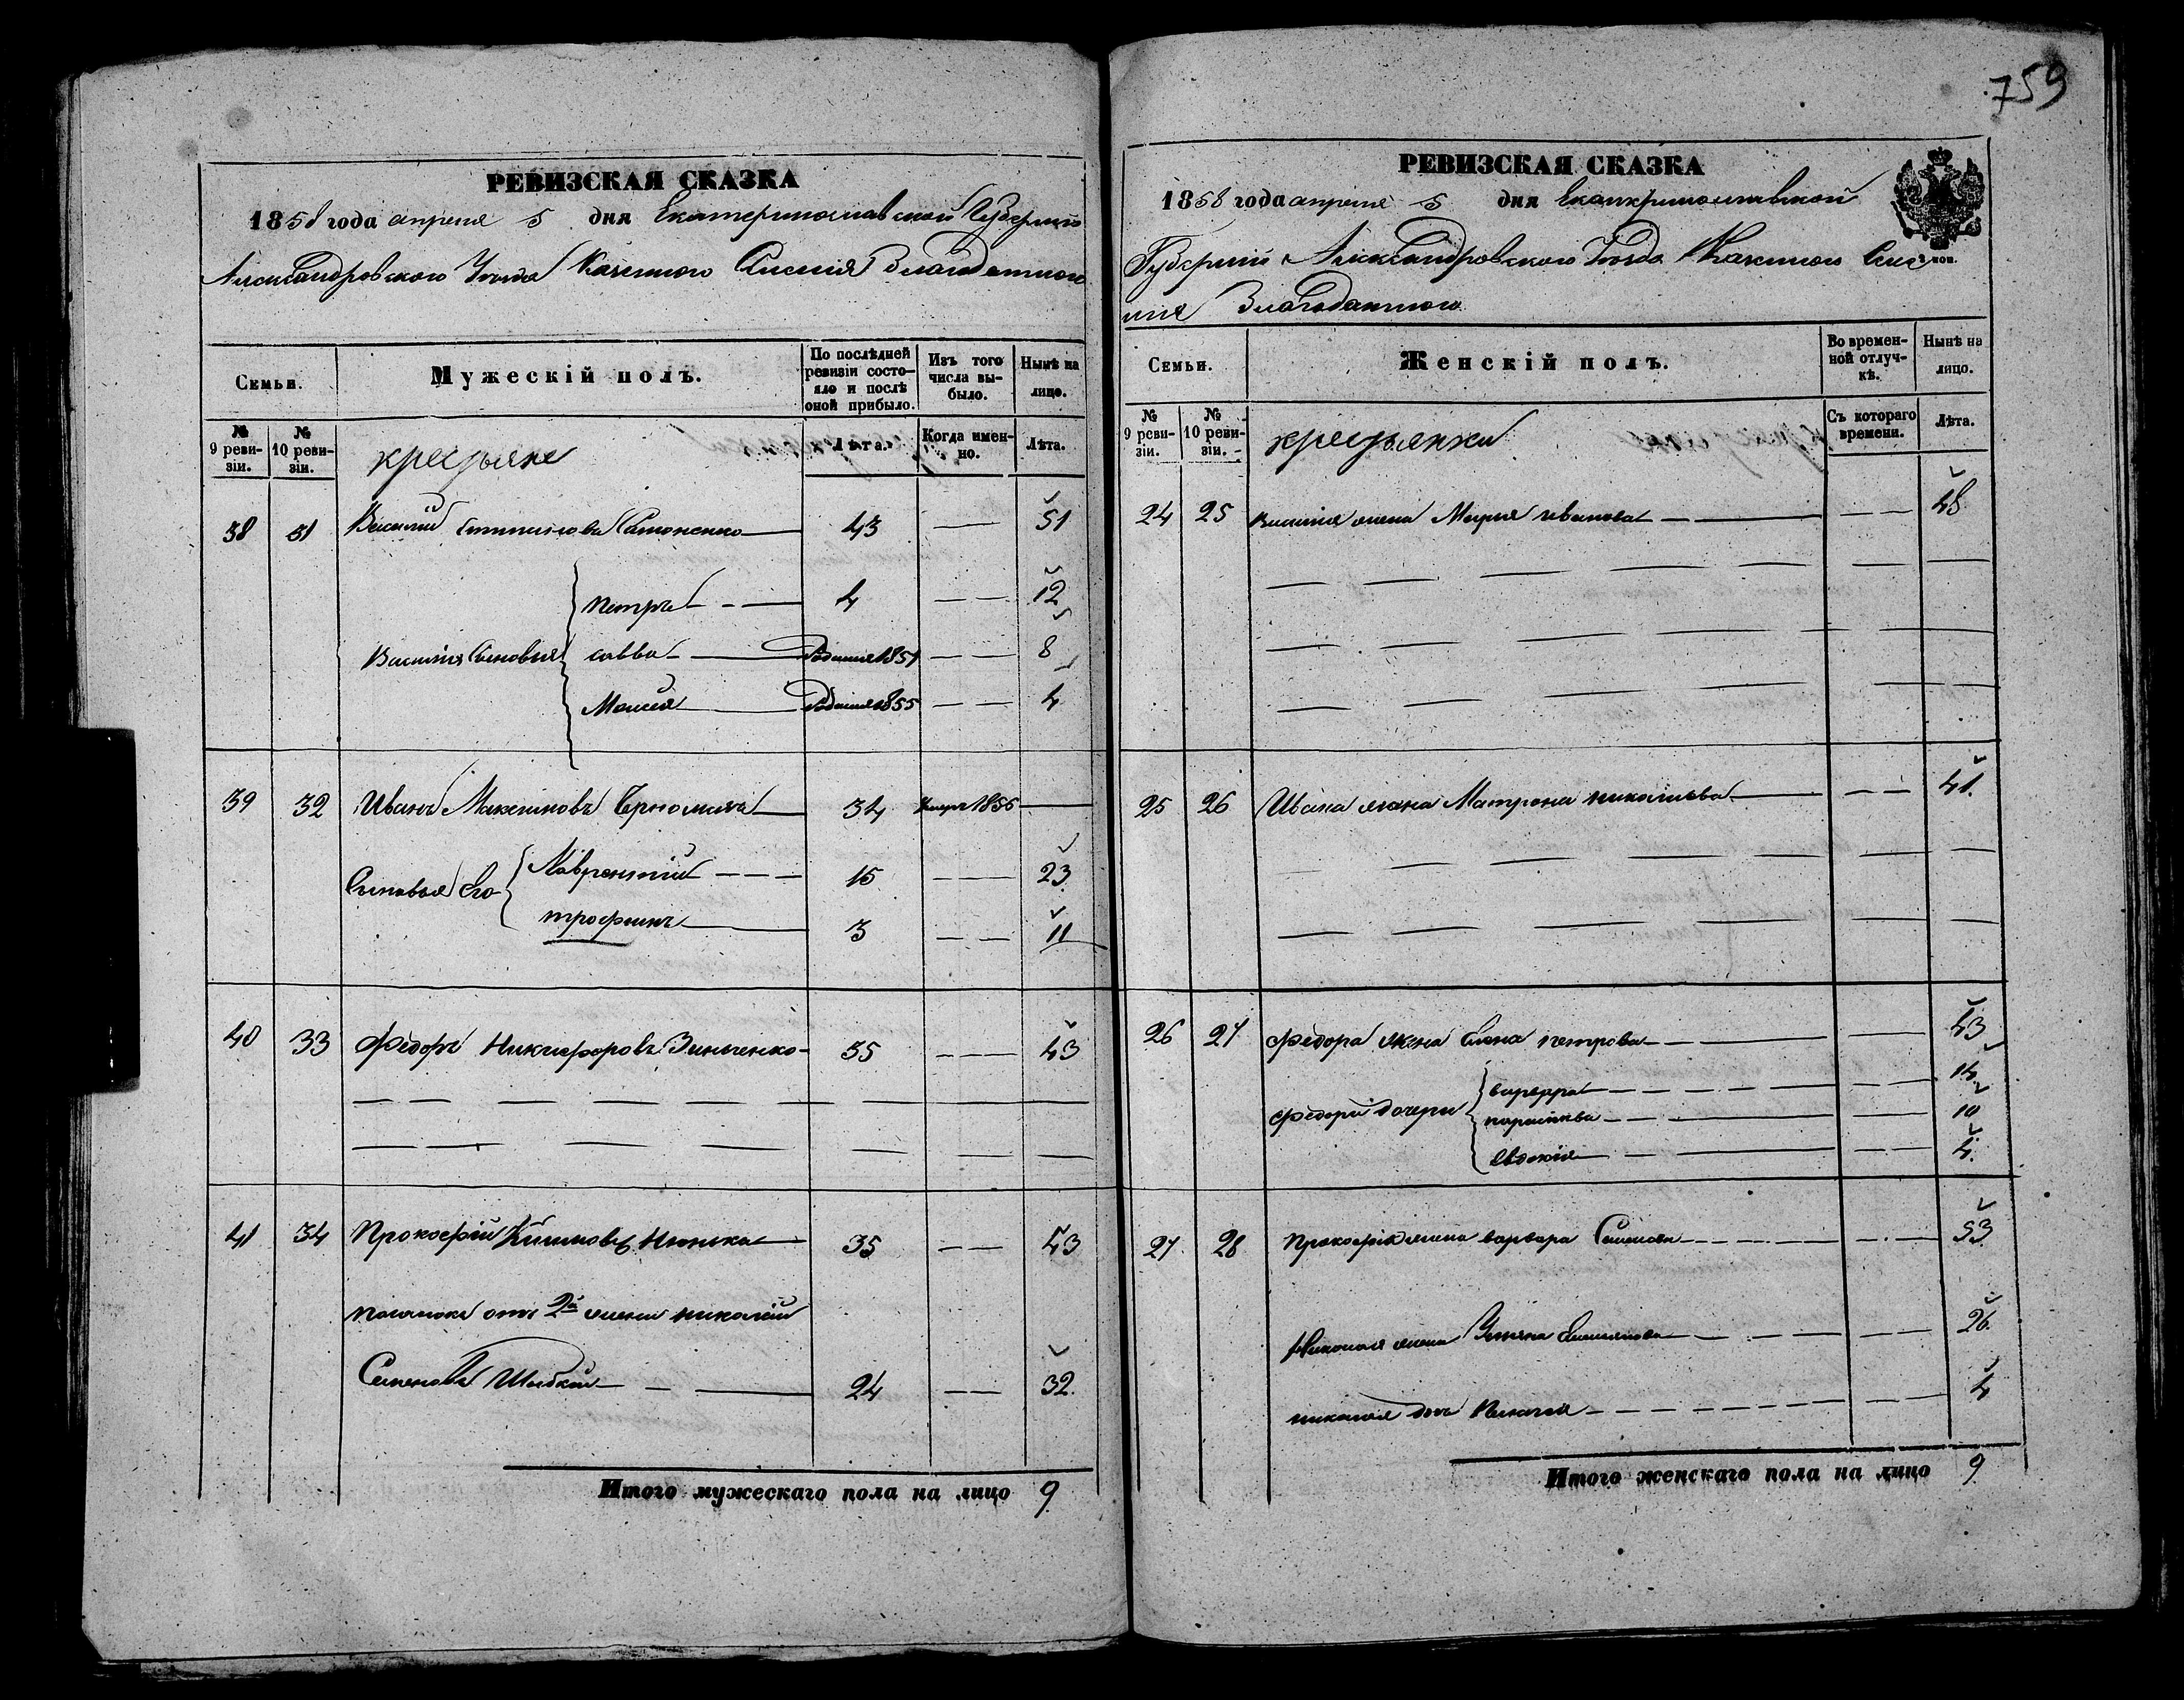 759
РЕВИЗСКАЯ СКАЗКА
1858 года апреля 5 дня Екатеринославской Губернии
Александровского Уезда Казенного Селения Благодатного
Семьи.
Мужескій полъ.
По послѣдней ревизіи состояло и послѣ оной прибыло.
Изъ того числа выбыло.
Нынѣ на лицо.
№ 9 ревизіи.
№ 10 ревизіи.
крестьяне
Лѣта.
Когда именно.
Лѣта.
38 31 Василий Самоненко 43 — — 51
Петръ 4 — — 12
Василия Сыновья Савва Родился 1851 — — 8
Моисей Родился 1855 — — 4
39 32 Иванъ Максимовъ 34 Умеръ 1855 —
Сыновья Его Лаврентий 15 — — 23
трофимъ 3 — — 11
40 33 Федоръ Никифоровъ Зинченко 35 — — 43
41 34 Прокофий Нюнька 35 — — 43
отъ 2й жены николай
Семеновъ 24 — — 32
Итого мужескаго пола на лицо 9
РЕВИЗСКАЯ СКАЗКА
1858 года апреля 5 дня Екатеринославской
Губернии Александровского Уезда Казенного Селе
ния Благодатного
Семьи.
Женскій полъ.
Во временной отлучкѣ.
Нынѣ на лицо.
№ 9 ревизіи.
№ 10 ревизіи.
крестьянки
Съ котораго времени.
Лѣта.
24 25 Василия жена Мария иванова — — 48
25 26 Ивана жена Матрона николаева — — 41
26 27 Федора жена Елена петрова — 43
Федора дочери варвара — — 14
парасковья — — 10
Евдокия — — 4
27 28 Прокофия жена варвара Семенова — — 53
Николая жена Ульяна — — 26
николая дочь Пелагея — — 4
Итого женскаго пола на лицо 9